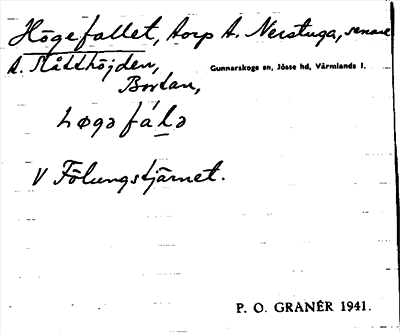 Högefallet, torp t. Nerstuga, senare
t. Slåtthöjden,
Gunnarskogs sn, Jösse hd, Värmlands l.
Bortan,
høgəfálə
V Fölungstjärnet.
P. O. GRANÉR 1941.